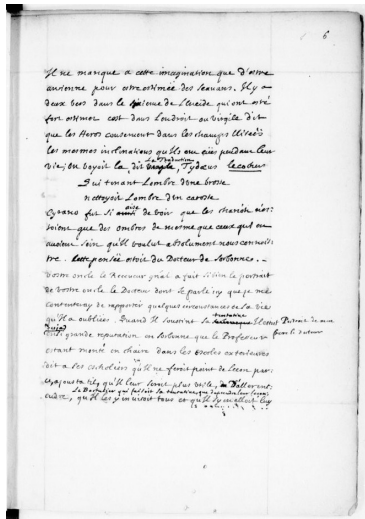 6
Il ne manque a cette imagination que d'estre
ancienne pour estre estimée des scavans. Il y a
deux vers dans le sixieme de l'Eneide qui ont esté
fort estimez cest dans l'endroit ou virgile dit
que les Heros conservent dans les champs Elisées
les mesmes inclinations qu'ils ont eües pendant leur
vie; On voyoit la dit Tydæus le cocher
Qui tenant L'ombre d'une brosse
nettoyoit L'ombre d'un carosse
Cyrano fut si aise de voir que les chariots n'es-
toient que des ombres de mesme que ceux qui en
avoient soin qu'il voulut absolument nous connois
tre. Cette pensée estoit du Docteur de Sorbonne.
Vostre oncle le Receveur a fait si bien le portrait
de vostre oncle le Docteur dont je parle icy que je me
contenteray de rapporter quelques circonstances de sa vie
qu'il a oubliées. Quand il soustint sa tentative Il estoit
grande reputation en Sorbonne que le Professeur
estant monté en chaire dans les escoles exterieures
dit a ses escholiers qu'il ne feroit point de Lecon par-
ce, ajousta t'il, qu'il leur seroit plus utile d'aller enten-
dre qu'il les y invitoit tous et qu'il s'y en alloit luy